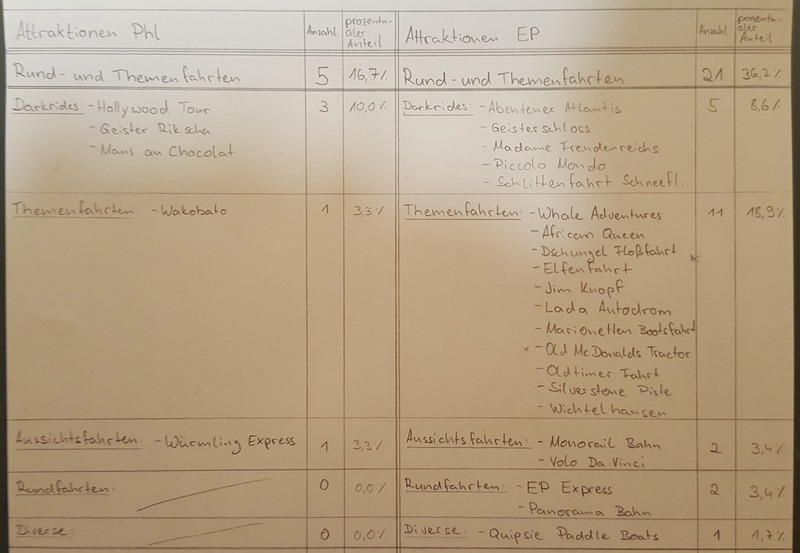 Attraktionen Phl Anzahl prozentu- aler Anteil Attraktionen EP Anzahl prozentu- aler Anteil
Rund- und Themenfahrten 5 16,7% Rund- und Themenfahrten 21 36,2%
Darkrides: - Hollywood Tour 3 10,0% Darkrides: - Abenteuer Atlantis 5 8,6%
- Geister Rikscha - Geisterschloss
- Maus au Chocolat - Madame Freudenreichs
- Piccolo Mondo
- Schlittenfahrt Schneefl.
Themenfahrten: - Wakobato 1 3,3% Themenfahrten: - Whale Adventures 11 18,9%
- African Queen
- Dschungel Floßfahrt
- Elfenfahrt
- Jim Knopf
- Lada Autodrom
- Marionetten Bootsfahrt
- Old McDonalds Tractor
- Oldtimer Fahrt
- Silverstone Piste
- Wichtelhausen
Aussichtsfahrten: - Würmling Express 1 3,3% Aussichtsfahrten: - Monorail Bahn 2 3,4%
- Volo Da Vinci
Rundfahrten: 0 0,0% Rundfahrten: - EP Express 2 3,4%
- Panorama Bahn
Diverse: 0 0,0% Diverse: - Quipsie Paddle Boats 1 1,7%